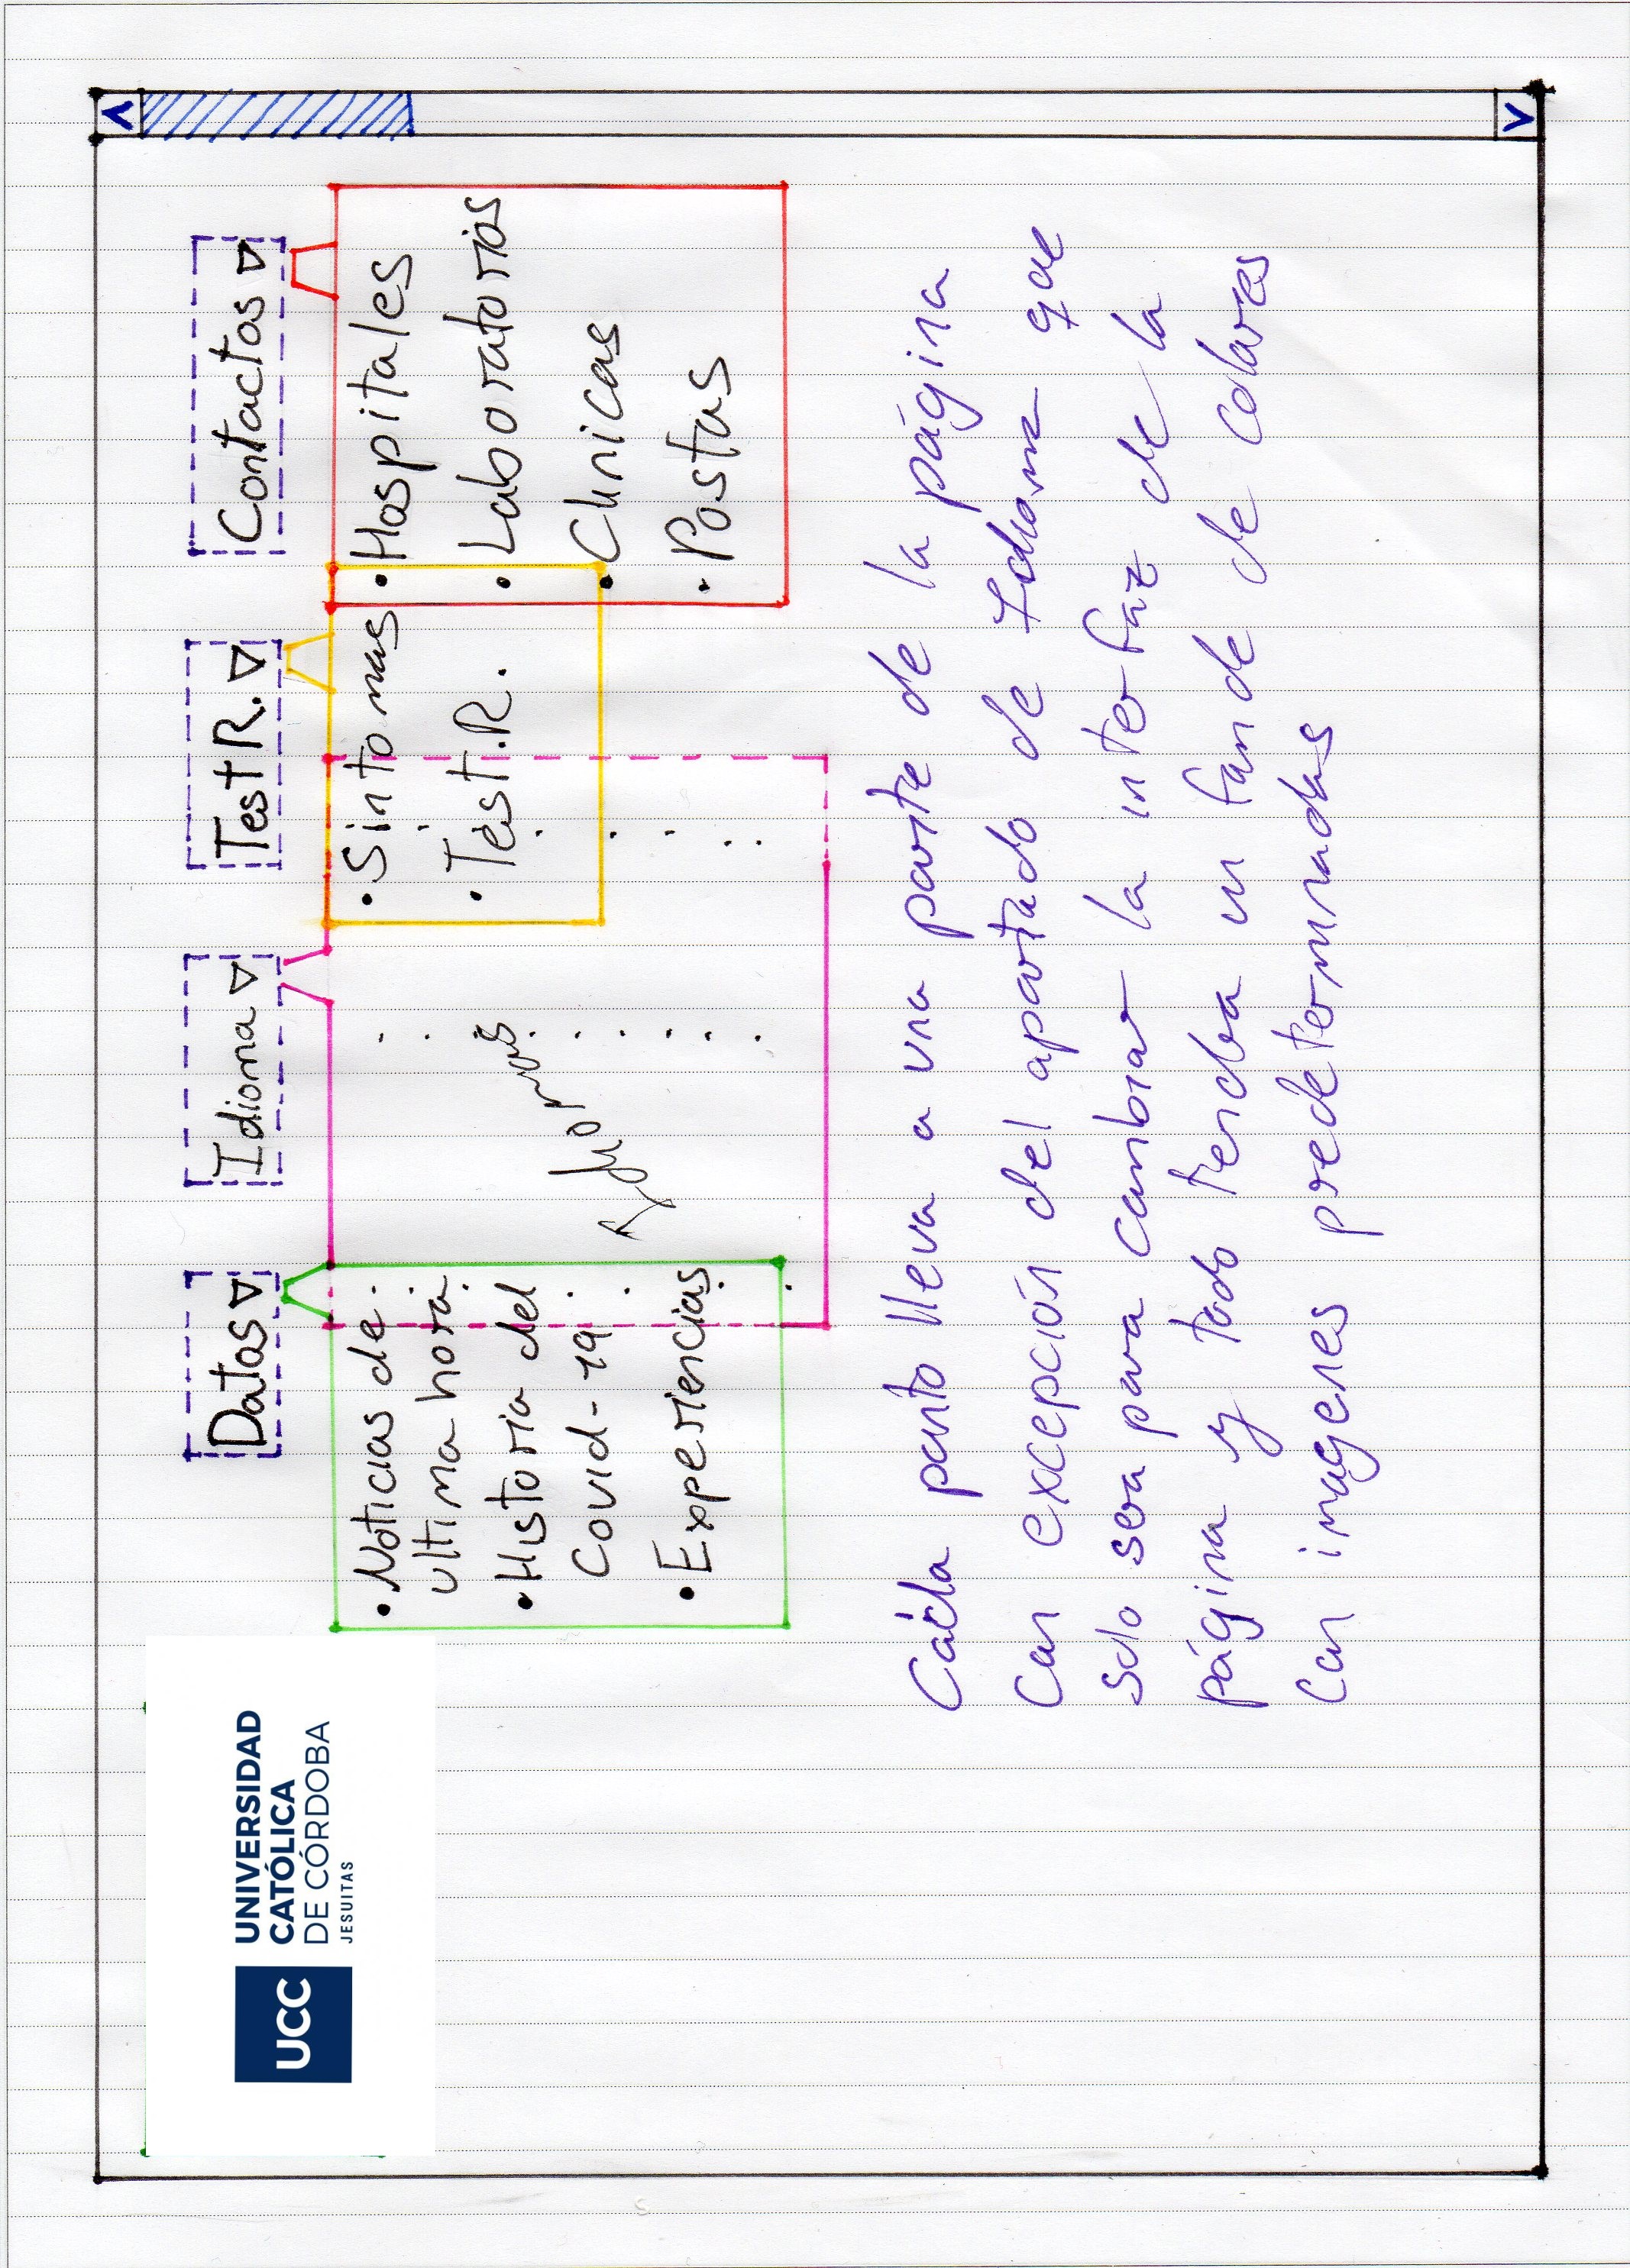 UCC
UNIVERSIDAD
CATÓLICA
DE CÓRDOBA
JESUITAS
Datos
Idioma
Test R.
Contactos
• Noticias de
ultima hora
• Historia del
Covid-19
• Experiencias
Idiomas
• Sintomas
• Test.R.
• Hospitales
• Laboratorios
• Clinicas
• Postas
Cada punto lleva a una parte de la página
Con excepción del apartado de Idioma que
solo sera para cambiar la interfaz de la
página y todo tendra un fondo de colores
con imagenes predeterminadas